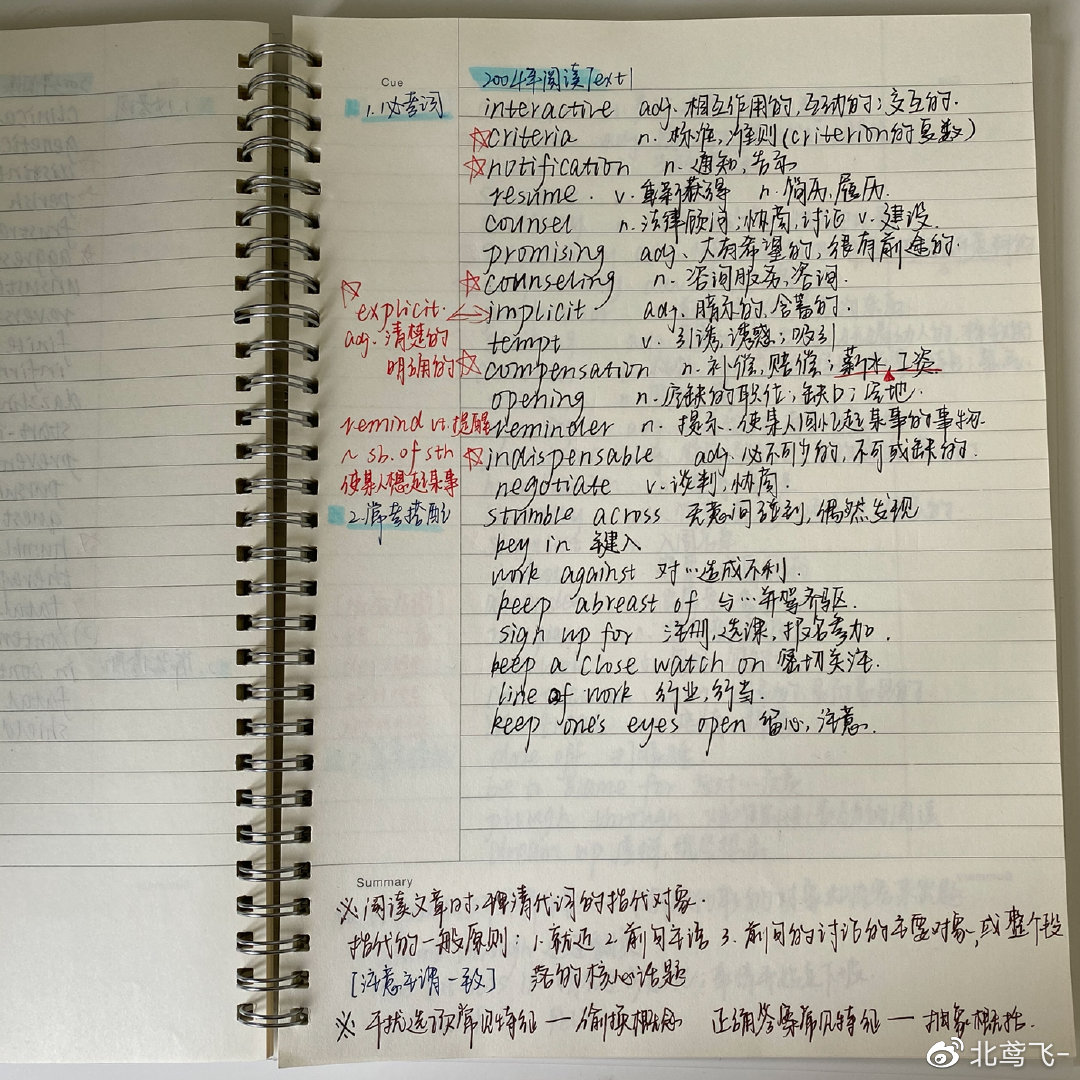 Cue
2004年阅读Text1
1.必考词
interactive adj. 相互作用的,互动的;交互的.
☆criteria n. 标准,准则(criterion的复数)
☆notification n. 通知,告示
resume. v. 重新获得 n. 简历,履历.
counsel n. 法律顾问;协商,讨论 v. 建设.
promising adj. 大有希望的,很有前途的.
☆counseling n. 咨询服务,咨询.
☆explicit. ↔ implicit adj. 暗示的,含蓄的.
adj. 清楚的
明确的
tempt v. 引诱,诱惑;吸引
☆compensation n. 补偿,赔偿;薪水,工资
opening n. 空缺的职位;缺口;空地.
remind vt. 提醒
~ sb. of sth
使某人想起某事
reminder n. 提示.使某人回忆起某事的事物.
☆indispensable adj. 必不可少的,不可或缺的.
negotiate v. 谈判,协商.
2.常考搭配
stumble across 无意间碰到,偶然发现
key in 键入
work against 对…造成不利.
keep abreast of 与…并驾齐驱.
sign up for 注册,选课,报名参加.
keep a close watch on 密切关注.
line of work 行业,行当.
keep one's eyes open 留心,注意.
Summary
※阅读文章时,理清代词的指代对象.
指代的一般原则: 1.就近 2.前句主语 3.前句的讨论的主要对象,或整个段
[注意主谓一致] 落的核心话题
※ 干扰选项常见特征—偷换概念 正确答案常见特征—抽象概括.
@北鸢飞-